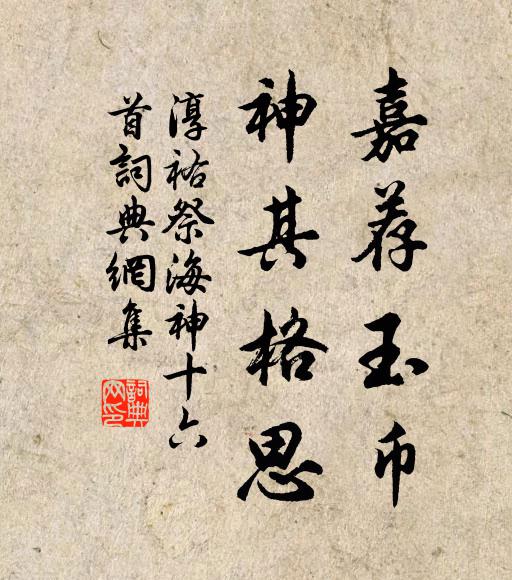 嘉荐玉币
神其格思
淳祐祭海神十六
首詞典網集
詞典
网印